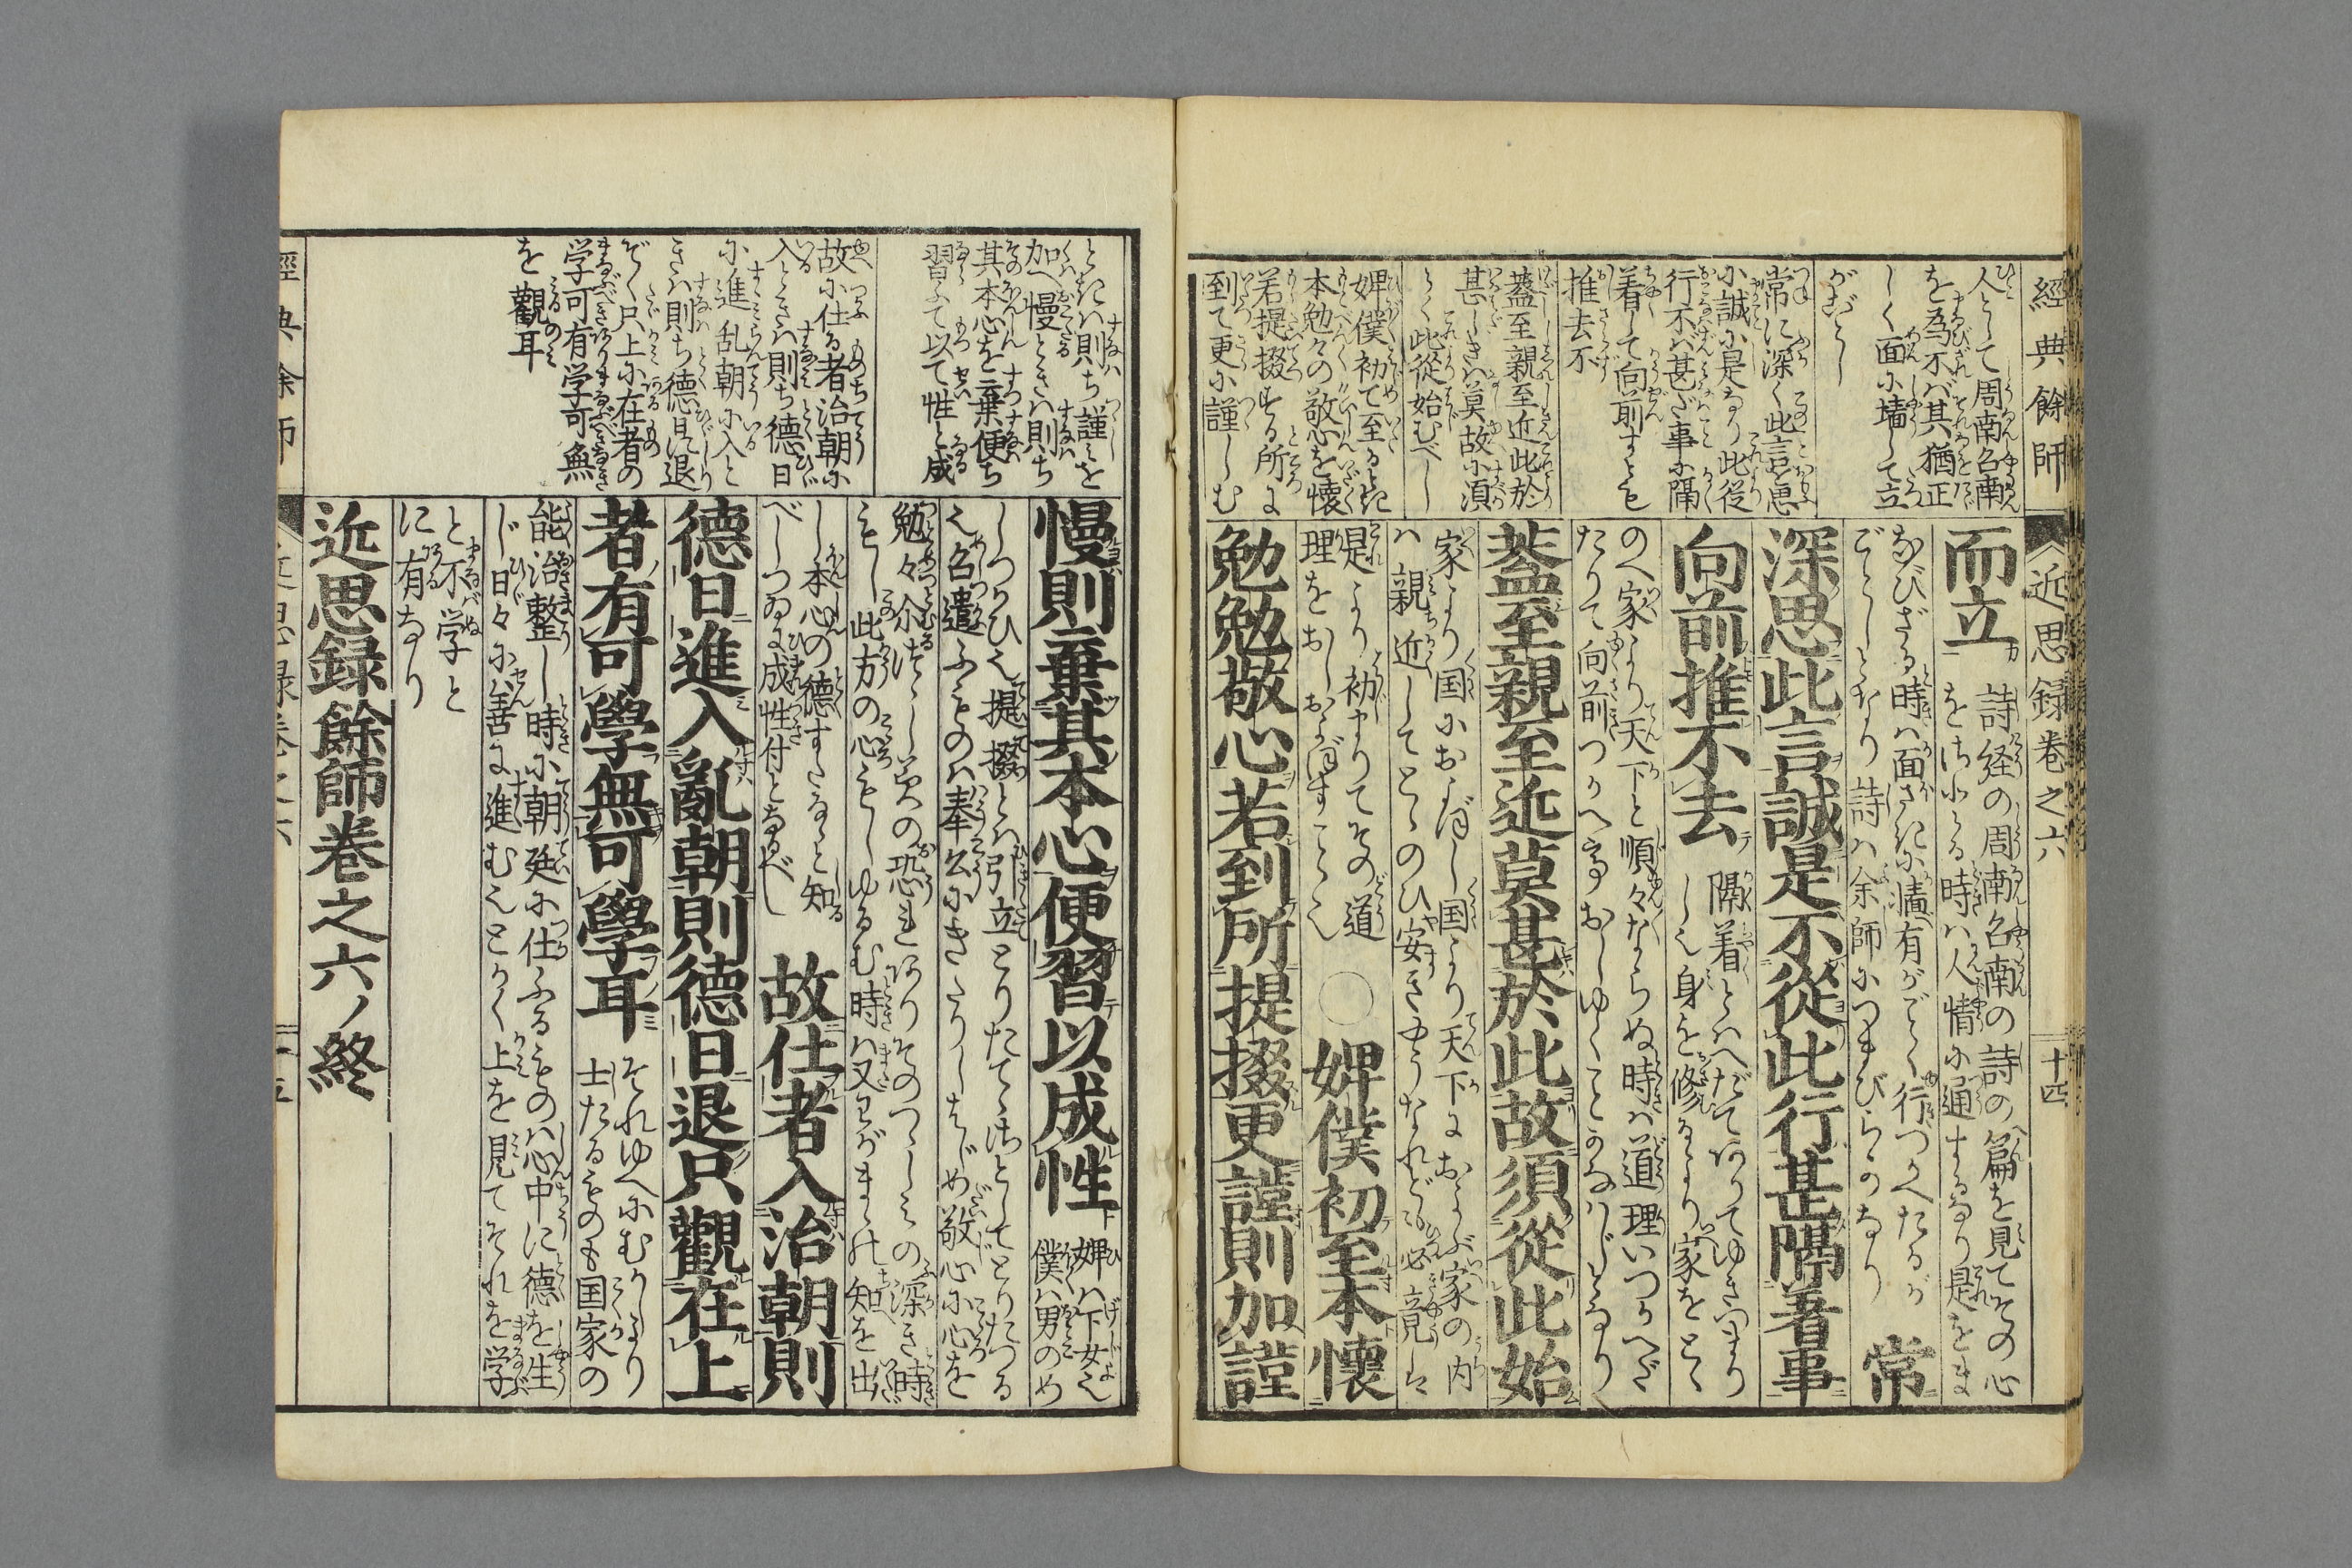 經典餘師
近思録巻之六
十四
人として周南召南
を為不バ其猶正
しく面に墻して立
がごとし
常に深く此言を思
に誠に是なり此従
行不バ甚だ事に隔
着して向前すとも
推去不
蓋至親至近此於
甚しきハ莫故に須
らく此従始むべし
婢僕初て至るときハ
本勉々の敬心を懐
若提掇する所に
到て更に謹しむ
而立
詩経の周南召南の詩の篇を見てその心
時ハ人情に通するなり是をま
なびざる時ハ面さきに墻有がごとく行つかへたるが
ごとしとなり詩ハ余師につまびらかなり
常
深思此言誠是不從此行甚隔著事
向前推不去
隔着とハへだて
しへ身を修るより家をとゝ
のへ家より天下と順々ならぬ時ハ道理いつかへだ
たりて向前つかへておしゆくことかなハじとなり
蓋至親至近莫甚於此故須從此始
家より国におよぼし国より天下におよぶ家の内
ハ親近してとゝのひ安きやうなれども必竟
是より初まりてその道
理をおしおよぼすことへ
○婢僕初至本懷
勉勉敬心若到所提掇更謹則加謹
ときハ則ち謹を
加へ慢ときハ則ち
其本心を棄便ち
習ふて以て性と成
故に仕る者治朝に
入ときハ則ち徳日
に進乱朝に入と
きハ則ち徳日に退
ぞく只上に在者の
学可有学可無
を觀耳
慢則棄其本心便習以成性
婢ハ下女へ
僕ハ男のめ
しつかひへ提掇とハ引立とりたて
へ召遣ふものハ奉公にきたりしはじめ敬心に心を
勉々
恐れありそのつゝしみの深き時
此方の心
ゆるむ時ハ又わがまゝ知を出
し本心の徳すたると知
べしつゐに成性付となるべし
故仕者入治朝則
德日進入亂朝則德日退只觀在上
者有可學無可學耳
それゆへにむかしより
士たるものも国家の
能治整し時に朝廷に仕ふるものハ心中に徳を生
じ日々に善に進むへとかく上を見てそれを学
と不学と
に有なり
近思録餘師巻之六ノ終